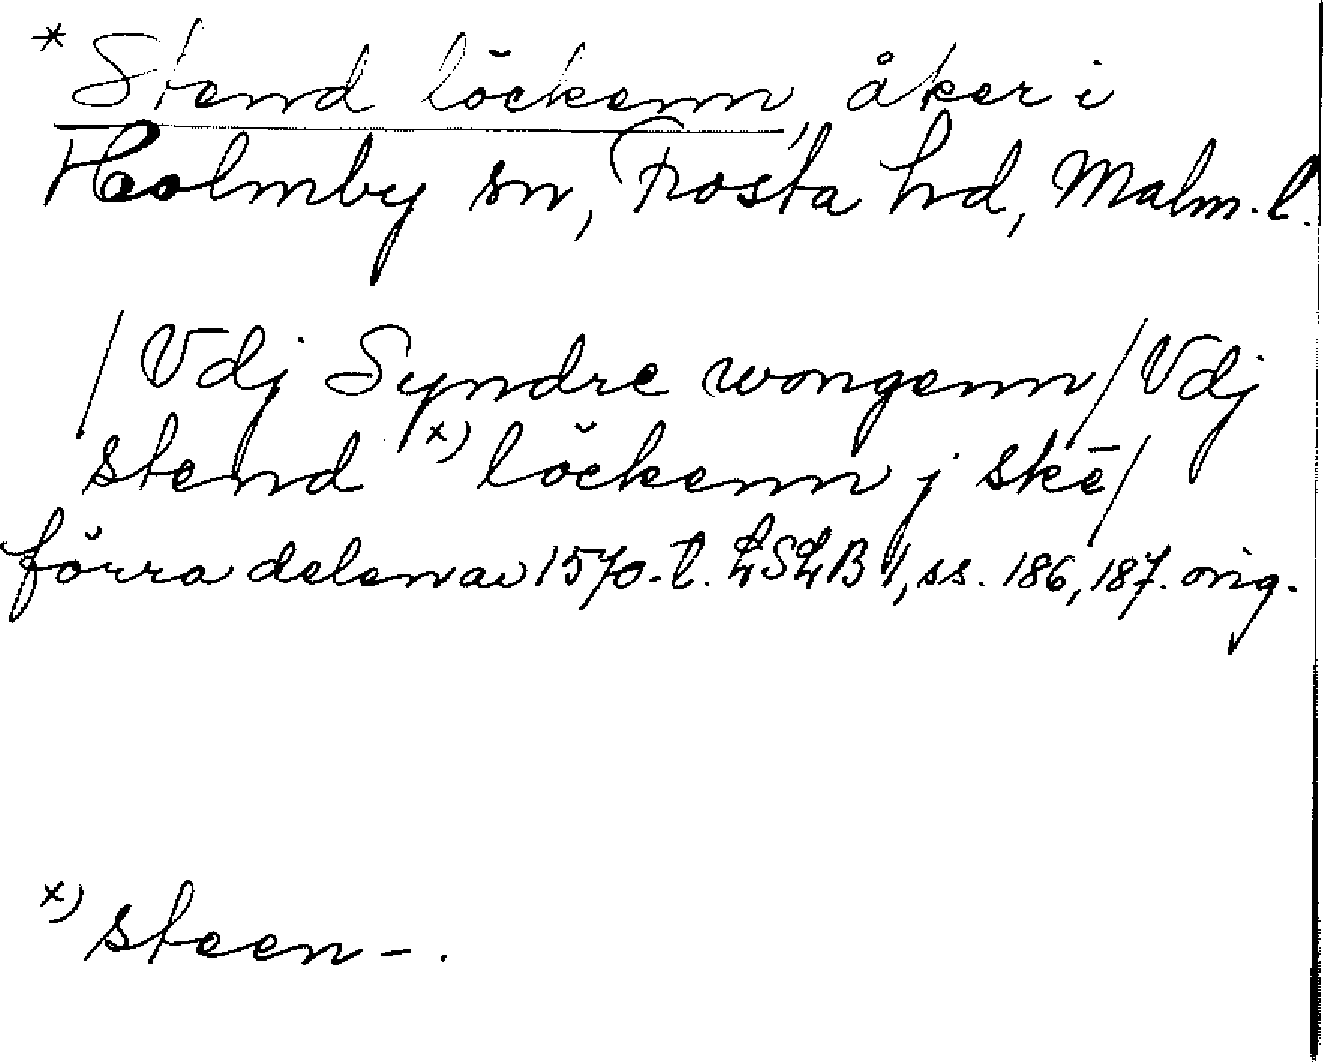 * Stend löckenn, åker i
Holmby sn, Frosta hd, Malm. l.
/Vdj Syndre wongenn/Vdj
stend x) löckenn j skē/
förra delen av 1570-t. LSLB 1, ss. 186, 187. orig.
x) steen-.